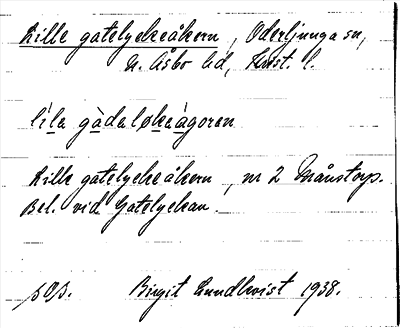 Lille gatelyckeåkern, Oderljunga sn,
N. Åsbo hd, Krist. l.
líla gàdaløkeàgoren
Lille gatelyckeåkern, nr 2 Månstorp.
Bel. vid Gatelyckan.
Birgit Lundkvist 1938.